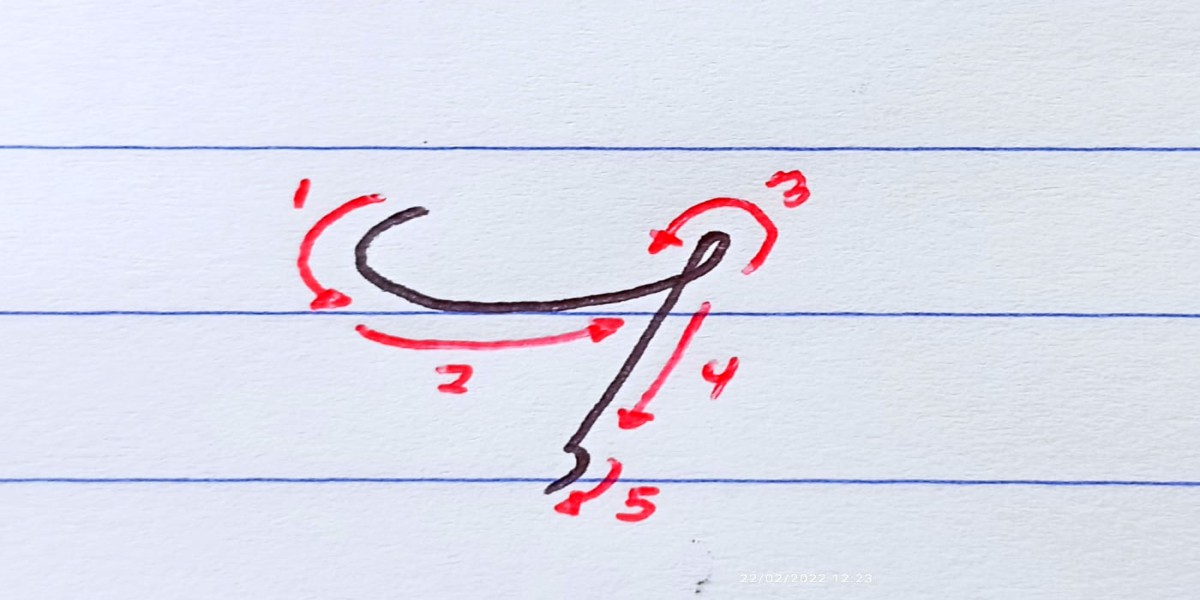 1
3
2
4
5
22/02/2022 12:23